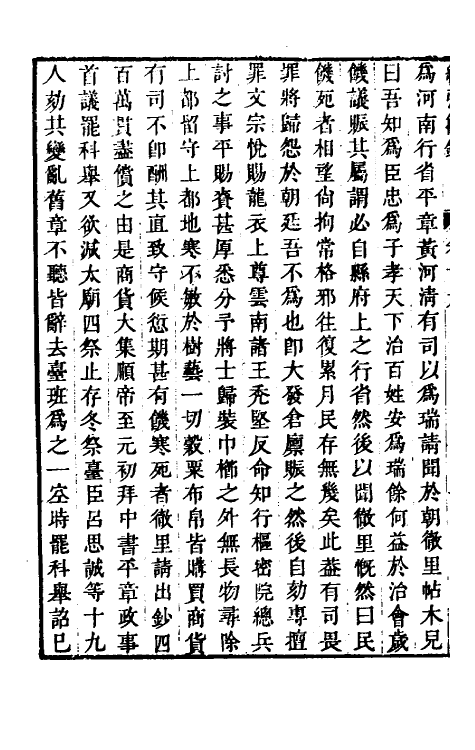 爲河南行省平章黃河淸有司以爲瑞請聞於朝徹里帖木兒
曰吾知爲臣忠爲子孝天下治百姓安爲瑞餘何益於治會歲
饑議賑其屬謂必自縣府上之行省然後以聞徹里慨然曰民
饑死者相望尚拘常格邪往復累月民存無幾矣此蓋有司畏
罪將歸怨於朝廷吾不爲也卽大發倉廪賑之然後自劾專擅
罪文宗悅賜龍衣上尊雲南諸王禿堅反命知行樞密院總兵
討之事平賜賚甚厚悉分予將士歸裝巾櫛之外無長物尋除
上都留守上都地寒不敏於樹藝一切穀粟布帛皆購買商貨
有司不卽酬其直致守候愆期甚有饑寒死者徹里請出鈔四
百萬貫盡償之由是商貨大集順帝至元初拜中書平章政事
首議罷科舉又欲減太廟四祭止存冬祭臺臣呂思誠等十九
人劾其變亂舊章不聽皆辭去臺班爲之一空時罷科舉詔已